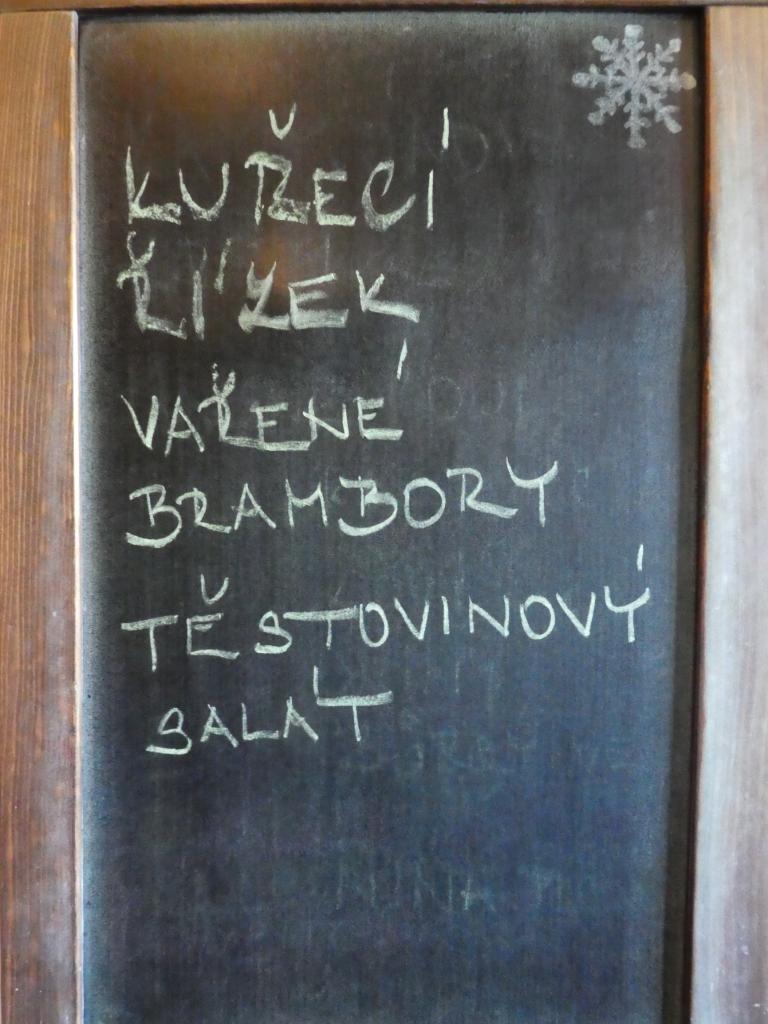 KUŘECÍ
ŘÍZEK
VAŘENÉ
BRAMBORY
TĚSTOVINOVÝ
SALÁT